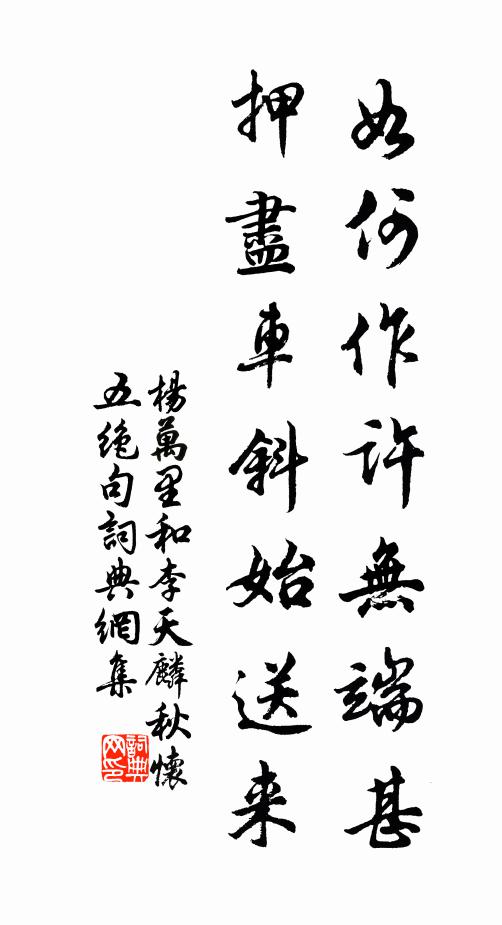 如何作許無端甚
押盡車斜始送来
楊萬里和李天麟秋懷
五絶句詞典網集
詞典
网印